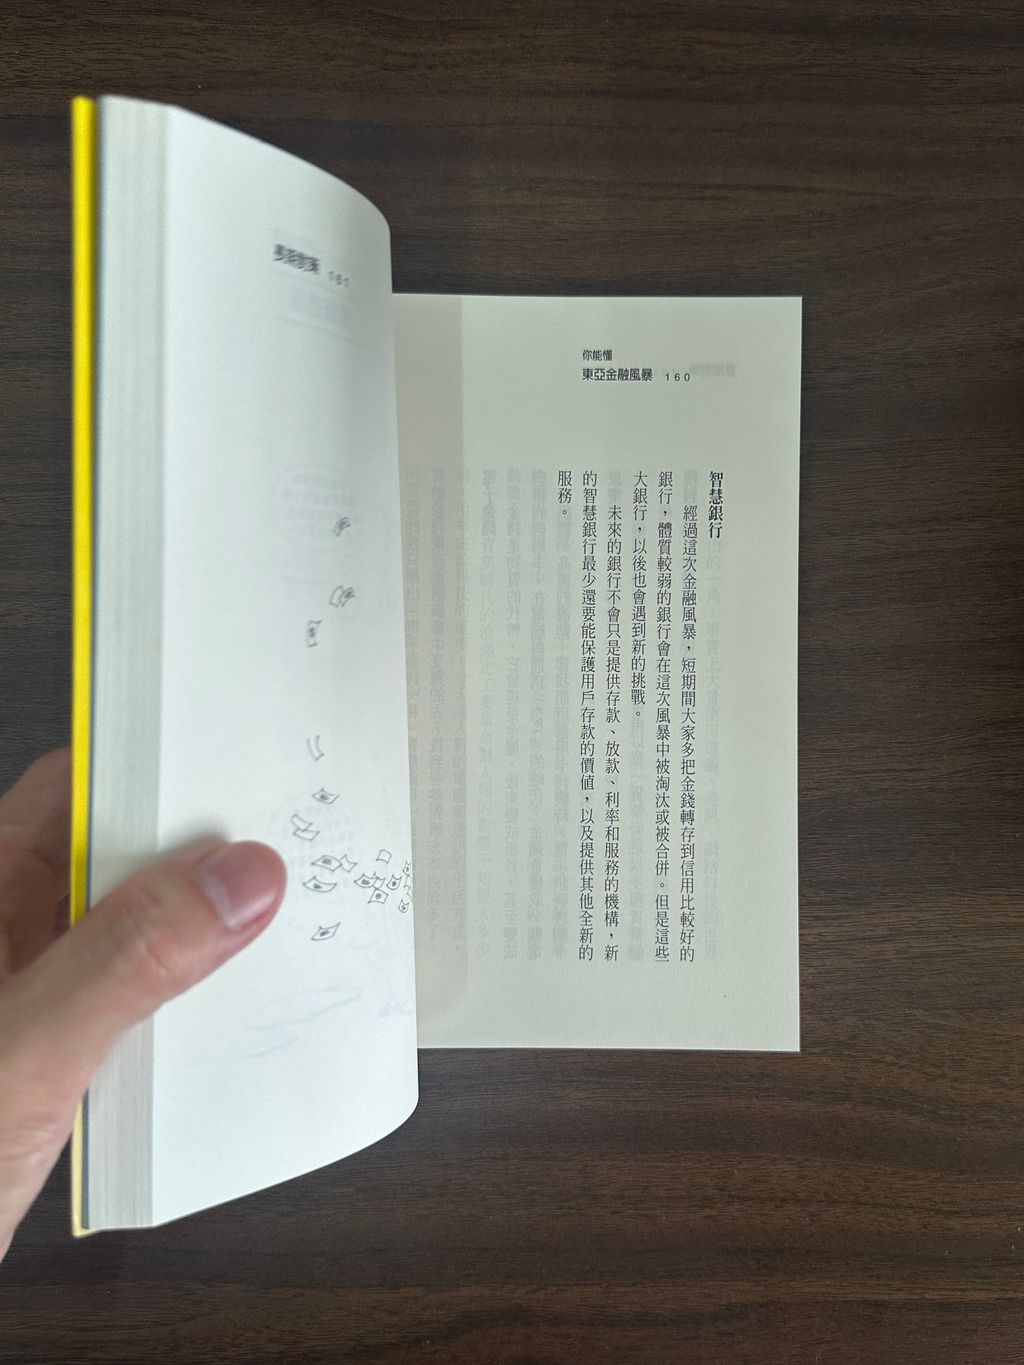 你能懂
東亞金融風暴 160
智慧銀行
經過這次金融風暴，短期間大家多把金錢轉存到信用比較好的
銀行，體質較弱的銀行會在這次風暴中被淘汰或被合併。但是這些
大銀行，以後也會遇到新的挑戰。
未來的銀行不會只是提供存款、放款、利率和服務的機構，新
的智慧銀行最少還要能保護用戶存款的價值，以及提供其他全新的
服務。
161